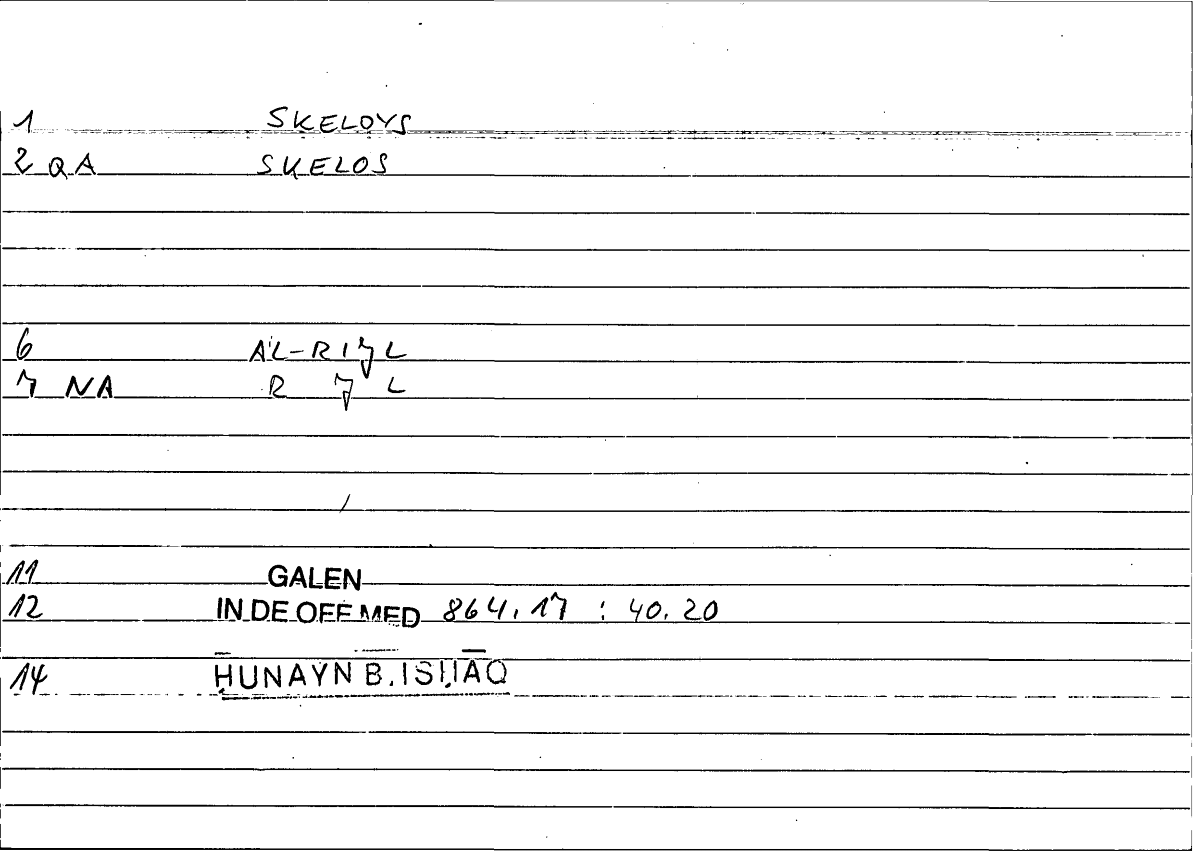 1 SKELOYS
2 QA SKELOS
6 AL-RIǦL
7 NA R Ǧ L
11 GALEN
12 IN DE OFF MED 864.17 : 40.20
14 ḤUNAYN B. ISḤĀQ